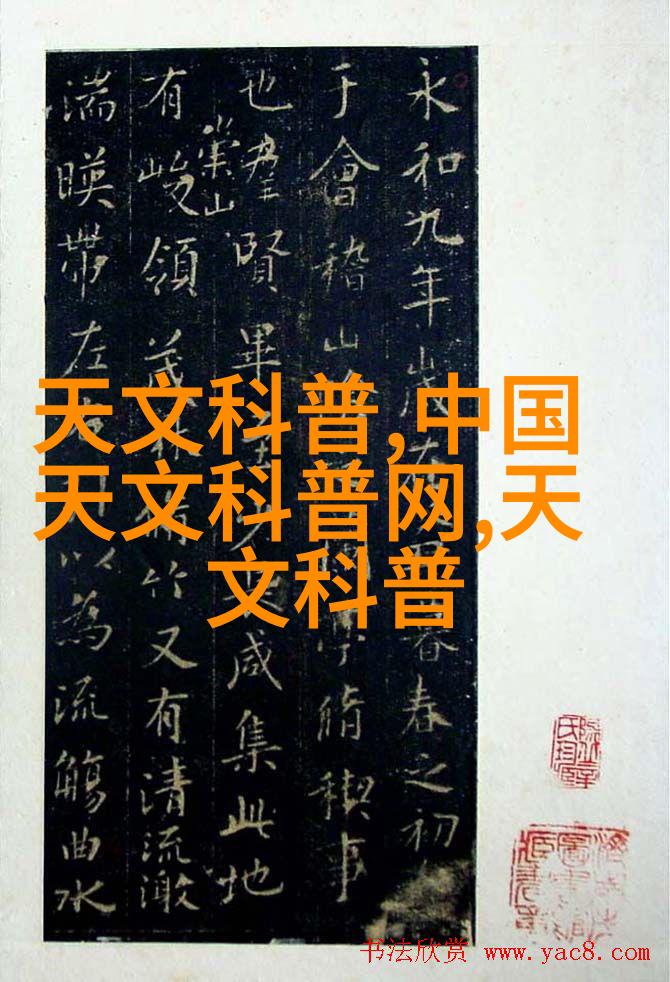 永和九年歲在暮春之初
于會稽山蘭亭脩稧事
也羣賢畢至少長咸集此地
有崇山峻領茂林脩竹又有清流激
湍暎帶左右引以為流觴曲水
天文科普,中国
天文科普网,天
文科普
书法欣赏 www.yac8.com